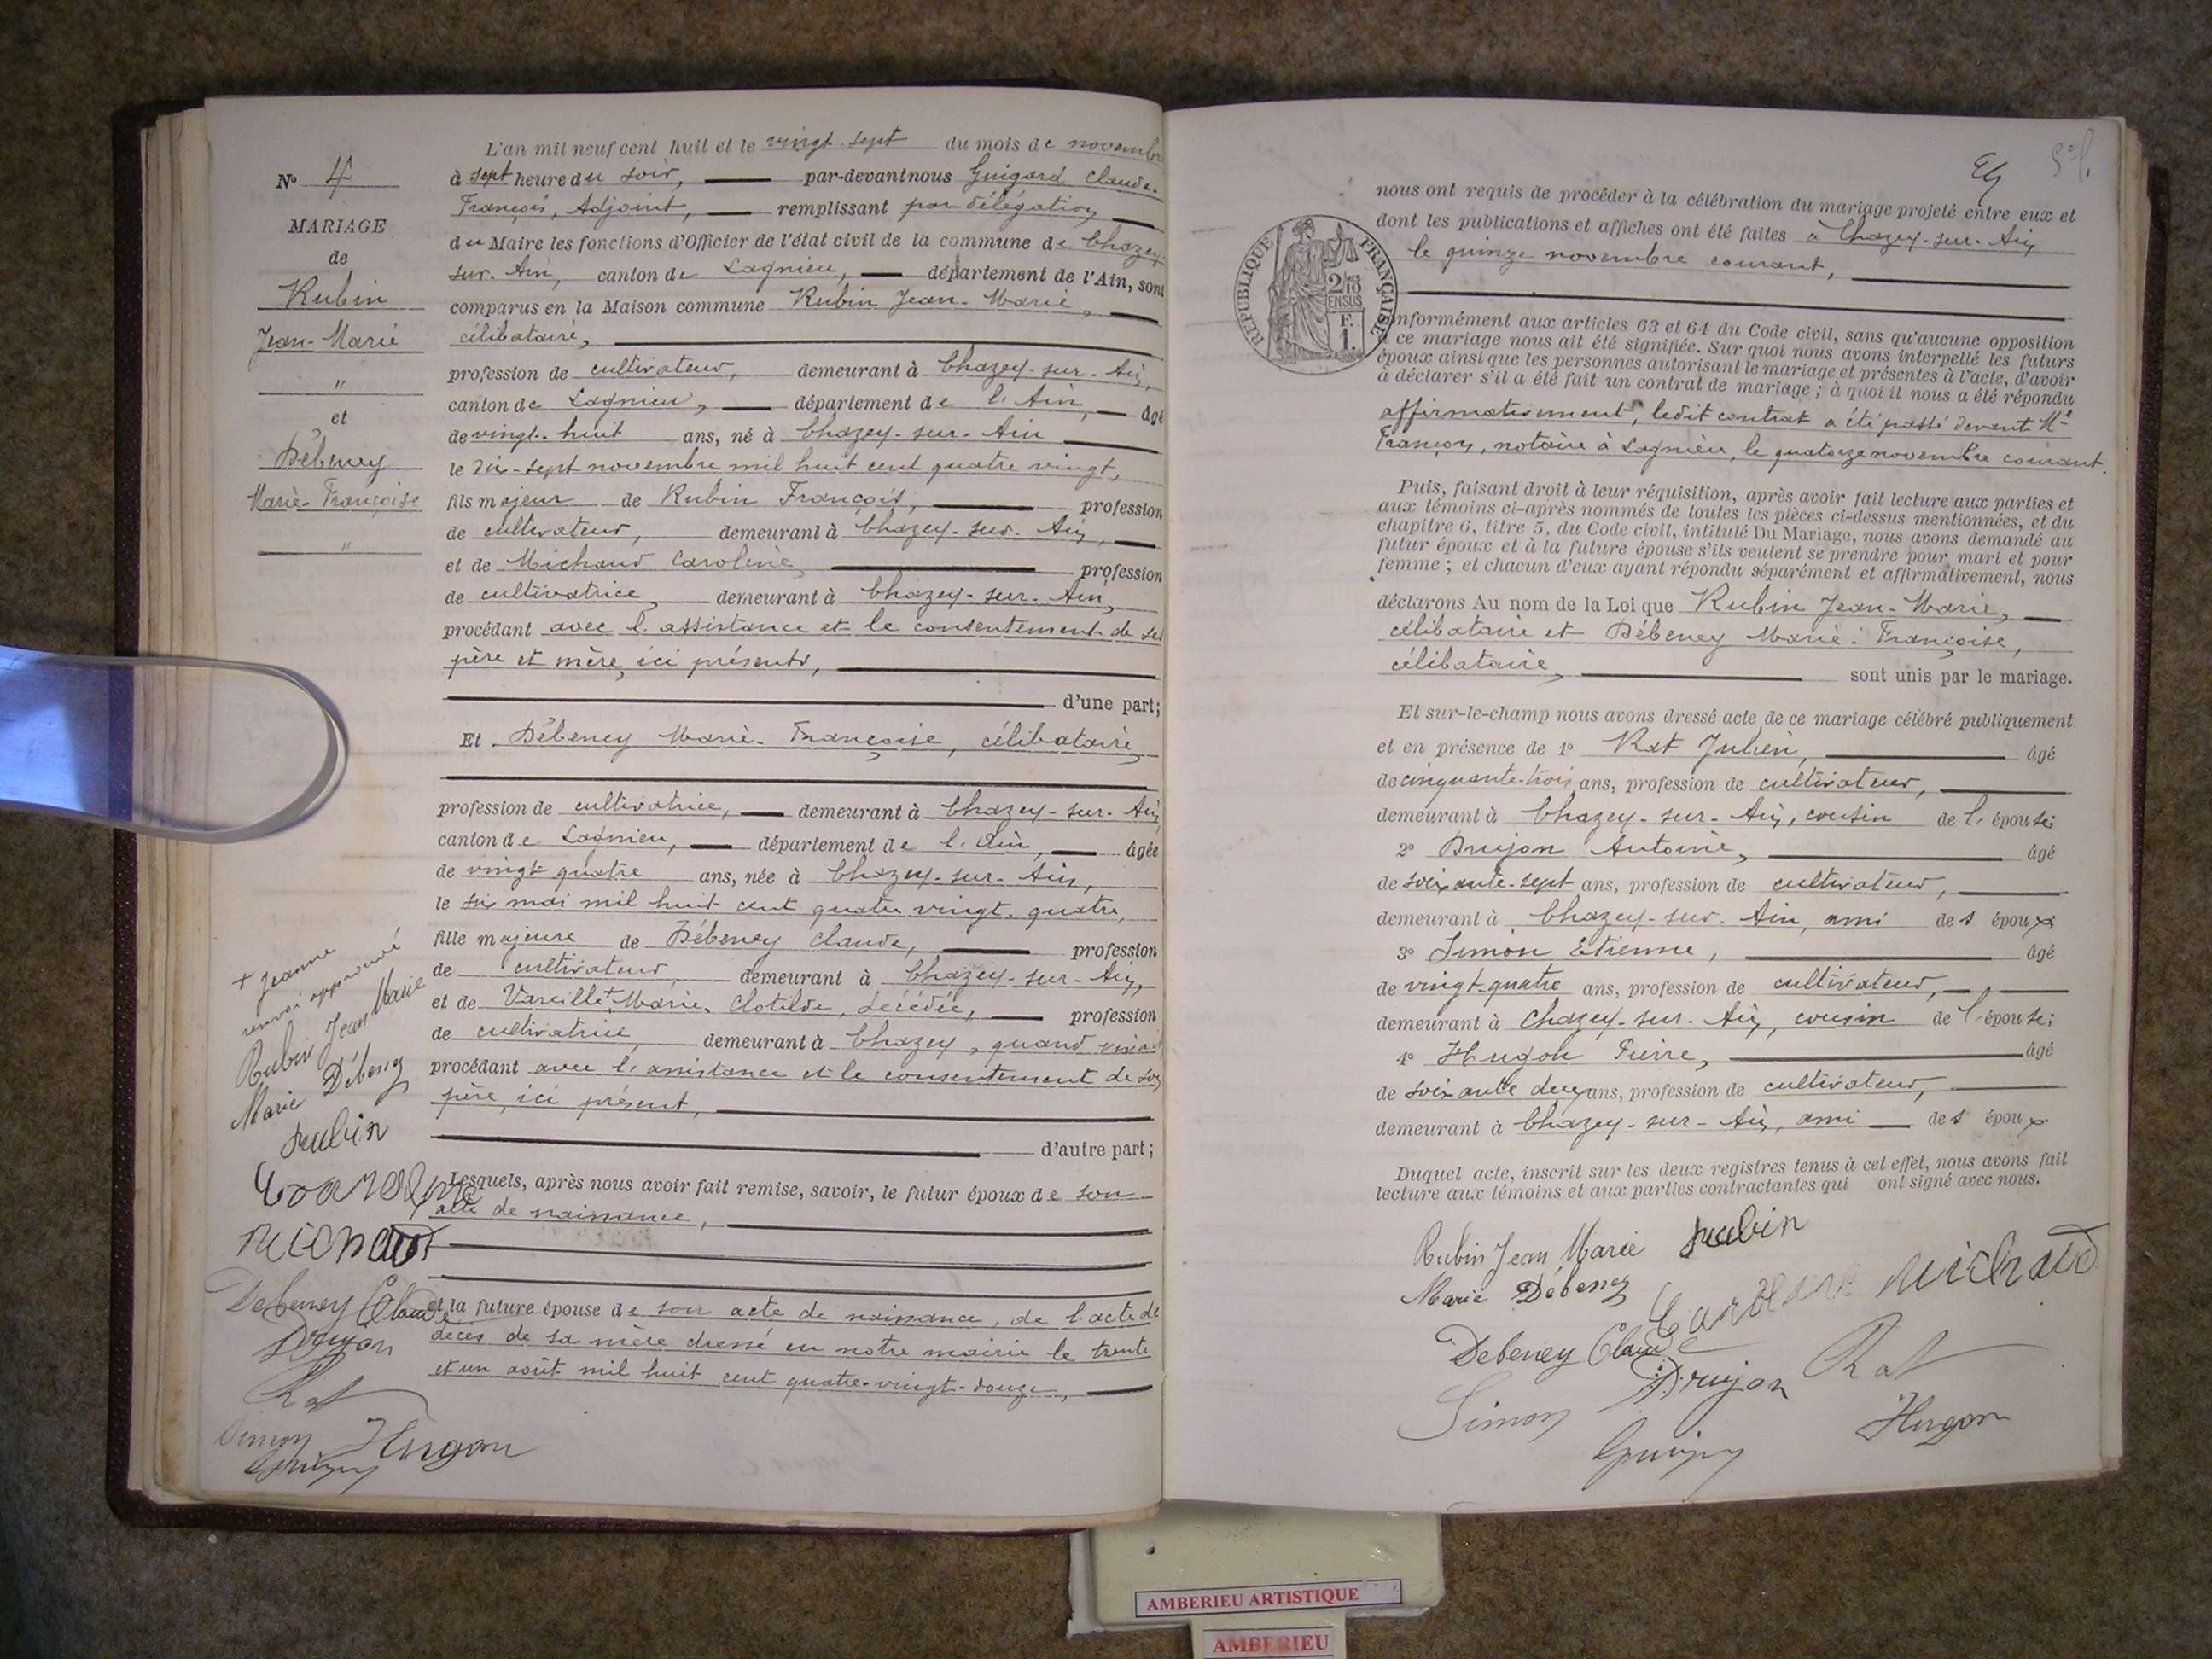 L'an mil neuf cent huit et le vingt-sept du mois de novembre
N° 4
à sept heure du soir, par-devant nous Guigard Claude-
François, Adjoint, remplissant par délégation
MARIAGE
du Maire les fonctions d'Officier de l'état civil de la commune de Chazey-
de
sur-Ain, canton de Lagnieu, département de l'Ain, sont
Rubin
comparus en la Maison commune Rubin Jean-Marie,
Jean-Marie
célibataire,
"
profession de cultivateur, demeurant à Chazey-sur-Ain,
canton de Lagnieu, département de l'Ain, âgé
et
de vingt-huit ans, né à Chazey-sur-Ain
Débeney
le dix-sept novembre mil huit cent quatre vingt,
Marie-Françoise
fils majeur de Rubin François, profession
"
de cultivateur, demeurant à Chazey-sur-Ain,
et de Michaud Caroline, profession
de cultivatrice, demeurant à Chazey-sur-Ain,
procédant avec l'assistance et le consentement de ses
père et mère, ici présents,
d'une part;
Et Débeney Marie-Françoise, célibataire,
profession de cultivatrice, demeurant à Chazey-sur-Ain,
canton de Lagnieu, département de l'Ain, âgée
de vingt-quatre ans, née à Chazey-sur-Ain,
le six mai mil huit cent quatre vingt-quatre,
fille majeure de Débeney Claude, profession
de cultivateur, demeurant à Chazey-sur-Ain,
et de Vareille + Marie-Clotilde, décédée, profession
de cultivatrice, demeurant à Chazey, quand vivait
procédant avec l'assistance et le consentement de son
père, ici présent,
d'autre part;
+ Jeanne
renvoi approuvé
Rubin Jean Marie
Marie Débeney
Rubin
Caroline
Michaud
Debeney Claude
Drujon
Rat
Simon Hugon
Lesquels, après nous avoir fait remise, savoir, le futur époux de son
acte de naissance,
et la future épouse de son acte de naissance, de l'acte de
décès de sa mère dressé en notre mairie le trente
et un août mil huit cent quatre-vingt-douze,
nous ont requis de procéder à la célébration du mariage projeté entre eux et
dont les publications et affiches ont été faites à Chazey-sur-Ain
le quinze novembre courant,
REPUBLIQUE FRANÇAISE
2/10
EN SUS
F.
1.
conformément aux articles 63 et 64 du Code civil, sans qu'aucune opposition
à ce mariage nous ait été signifiée. Sur quoi nous avons interpellé les futurs
époux ainsi que les personnes autorisant le mariage et présentes à l'acte, d'avoir
à déclarer s'il a été fait un contrat de mariage ; à quoi il nous a été répondu
affirmativement, ledit contrat a été passé devant Me
Françon, notaire à Lagnieu, le quatorze novembre courant.
Puis, faisant droit à leur réquisition, après avoir fait lecture aux parties et
aux témoins ci-après nommés de toutes les pièces ci-dessus mentionnées, et du
chapitre 6, titre 5, du Code civil, intitulé Du Mariage, nous avons demandé au
futur époux et à la future épouse s'ils veulent se prendre pour mari et pour
femme ; et chacun d'eux ayant répondu séparément et affirmativement, nous
déclarons Au nom de la Loi que Rubin Jean-Marie,
célibataire et Débeney Marie-Françoise,
célibataire, sont unis par le mariage.
Et sur-le-champ nous avons dressé acte de ce mariage célébré publiquement
et en présence de 1° Rat Julien, âgé
de cinquante-trois ans, profession de cultivateur,
demeurant à Chazey-sur-Ain, cousin de l'épouse;
2° Drujon Antoine, âgé
de soixante-sept ans, profession de cultivateur,
demeurant à Chazey-sur-Ain, ami des époux;
3° Simon Etienne, âgé
de vingt-quatre ans, profession de cultivateur,
demeurant à Chazey-sur-Ain, cousin de l'épouse;
4° Hugon Pierre, âgé
de soixante deux ans, profession de cultivateur,
demeurant à Chazey-sur-Ain, ami des époux
Duquel acte, inscrit sur les deux registres tenus à cet effet, nous avons fait
lecture aux témoins et aux parties contractantes qui ont signé avec nous.
Rubin Jean Marie Rubin
Marie Débeney Caroline Michaud
Debeney Claude
Drujon Rat
Simon Hugon
AMBERIEU ARTISTIQUE
AMBERIEU